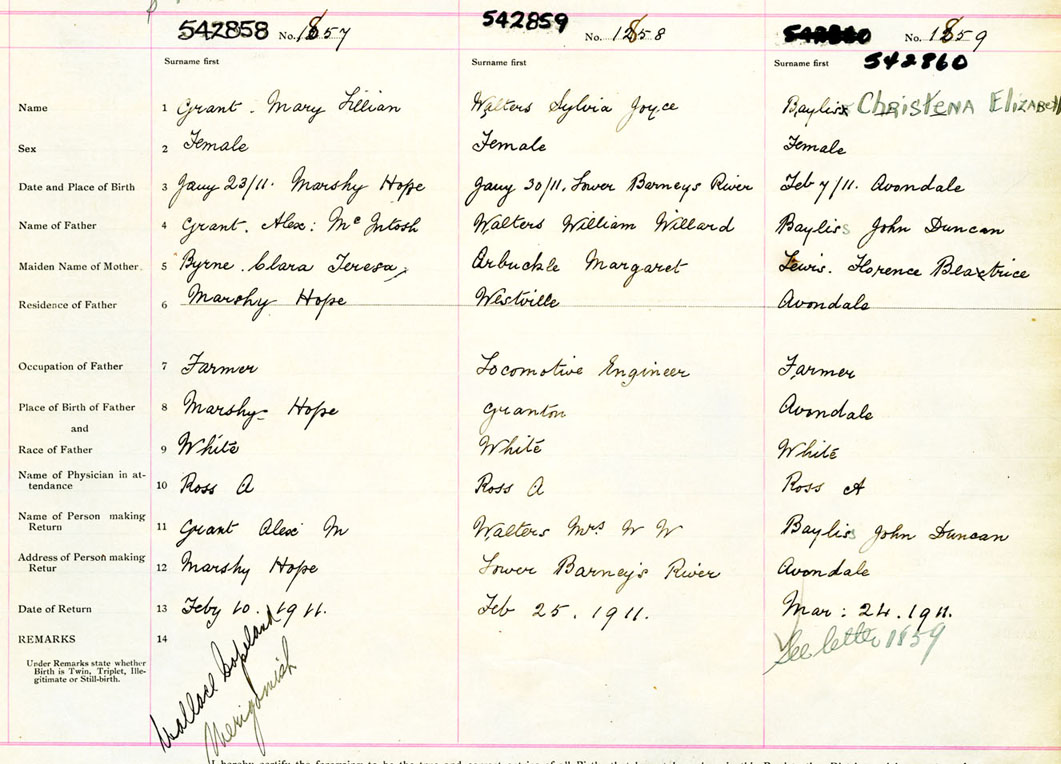 542858 No. 1857 542859 No. 1858 No. 1859
Surname first Surname first Surname first 542860
Name 1 Grant. Mary Lillian Walters Sylvia Joyce Bayliss Christena Elizabeth
Sex 2 Female Female Female
Date and Place of Birth 3 Jany 23/11. Marshy Hope Jany 30/11. Lower Barneys River Feb 7/11. Avondale
Name of Father 4 Grant. Alex: McIntosh Walters William Willard Bayliss John Duncan
Maiden Name of Mother 5 Byrne. Clara Teresa Arbuckle Margaret Lewis. Florence Beatrice
Residence of Father 6 Marshy Hope Westville Avondale
Occupation of Father 7 Farmer Locomotive Engineer Farmer
Place of Birth of Father 8 Marshy Hope Granton Avondale
and
Race of Father 9 White White White
Name of Physician in at-
tendance 10 Ross A Ross A Ross A
Name of Person making
Return 11 Grant Alex M Walters Mrs W W Bayliss John Duncan
Address of Person making
Retur 12 Marshy Hope Lower Barney's River Avondale
Date of Return 13 Feby 10. 1911. Feb 25. 1911. Mar: 24. 1911.
REMARKS 14 See letter 1859
Under Remarks state whether
Birth is Twin, Triplet, Ille-
gitimate or Still-birth.
Wallace Copeland
Merigomish